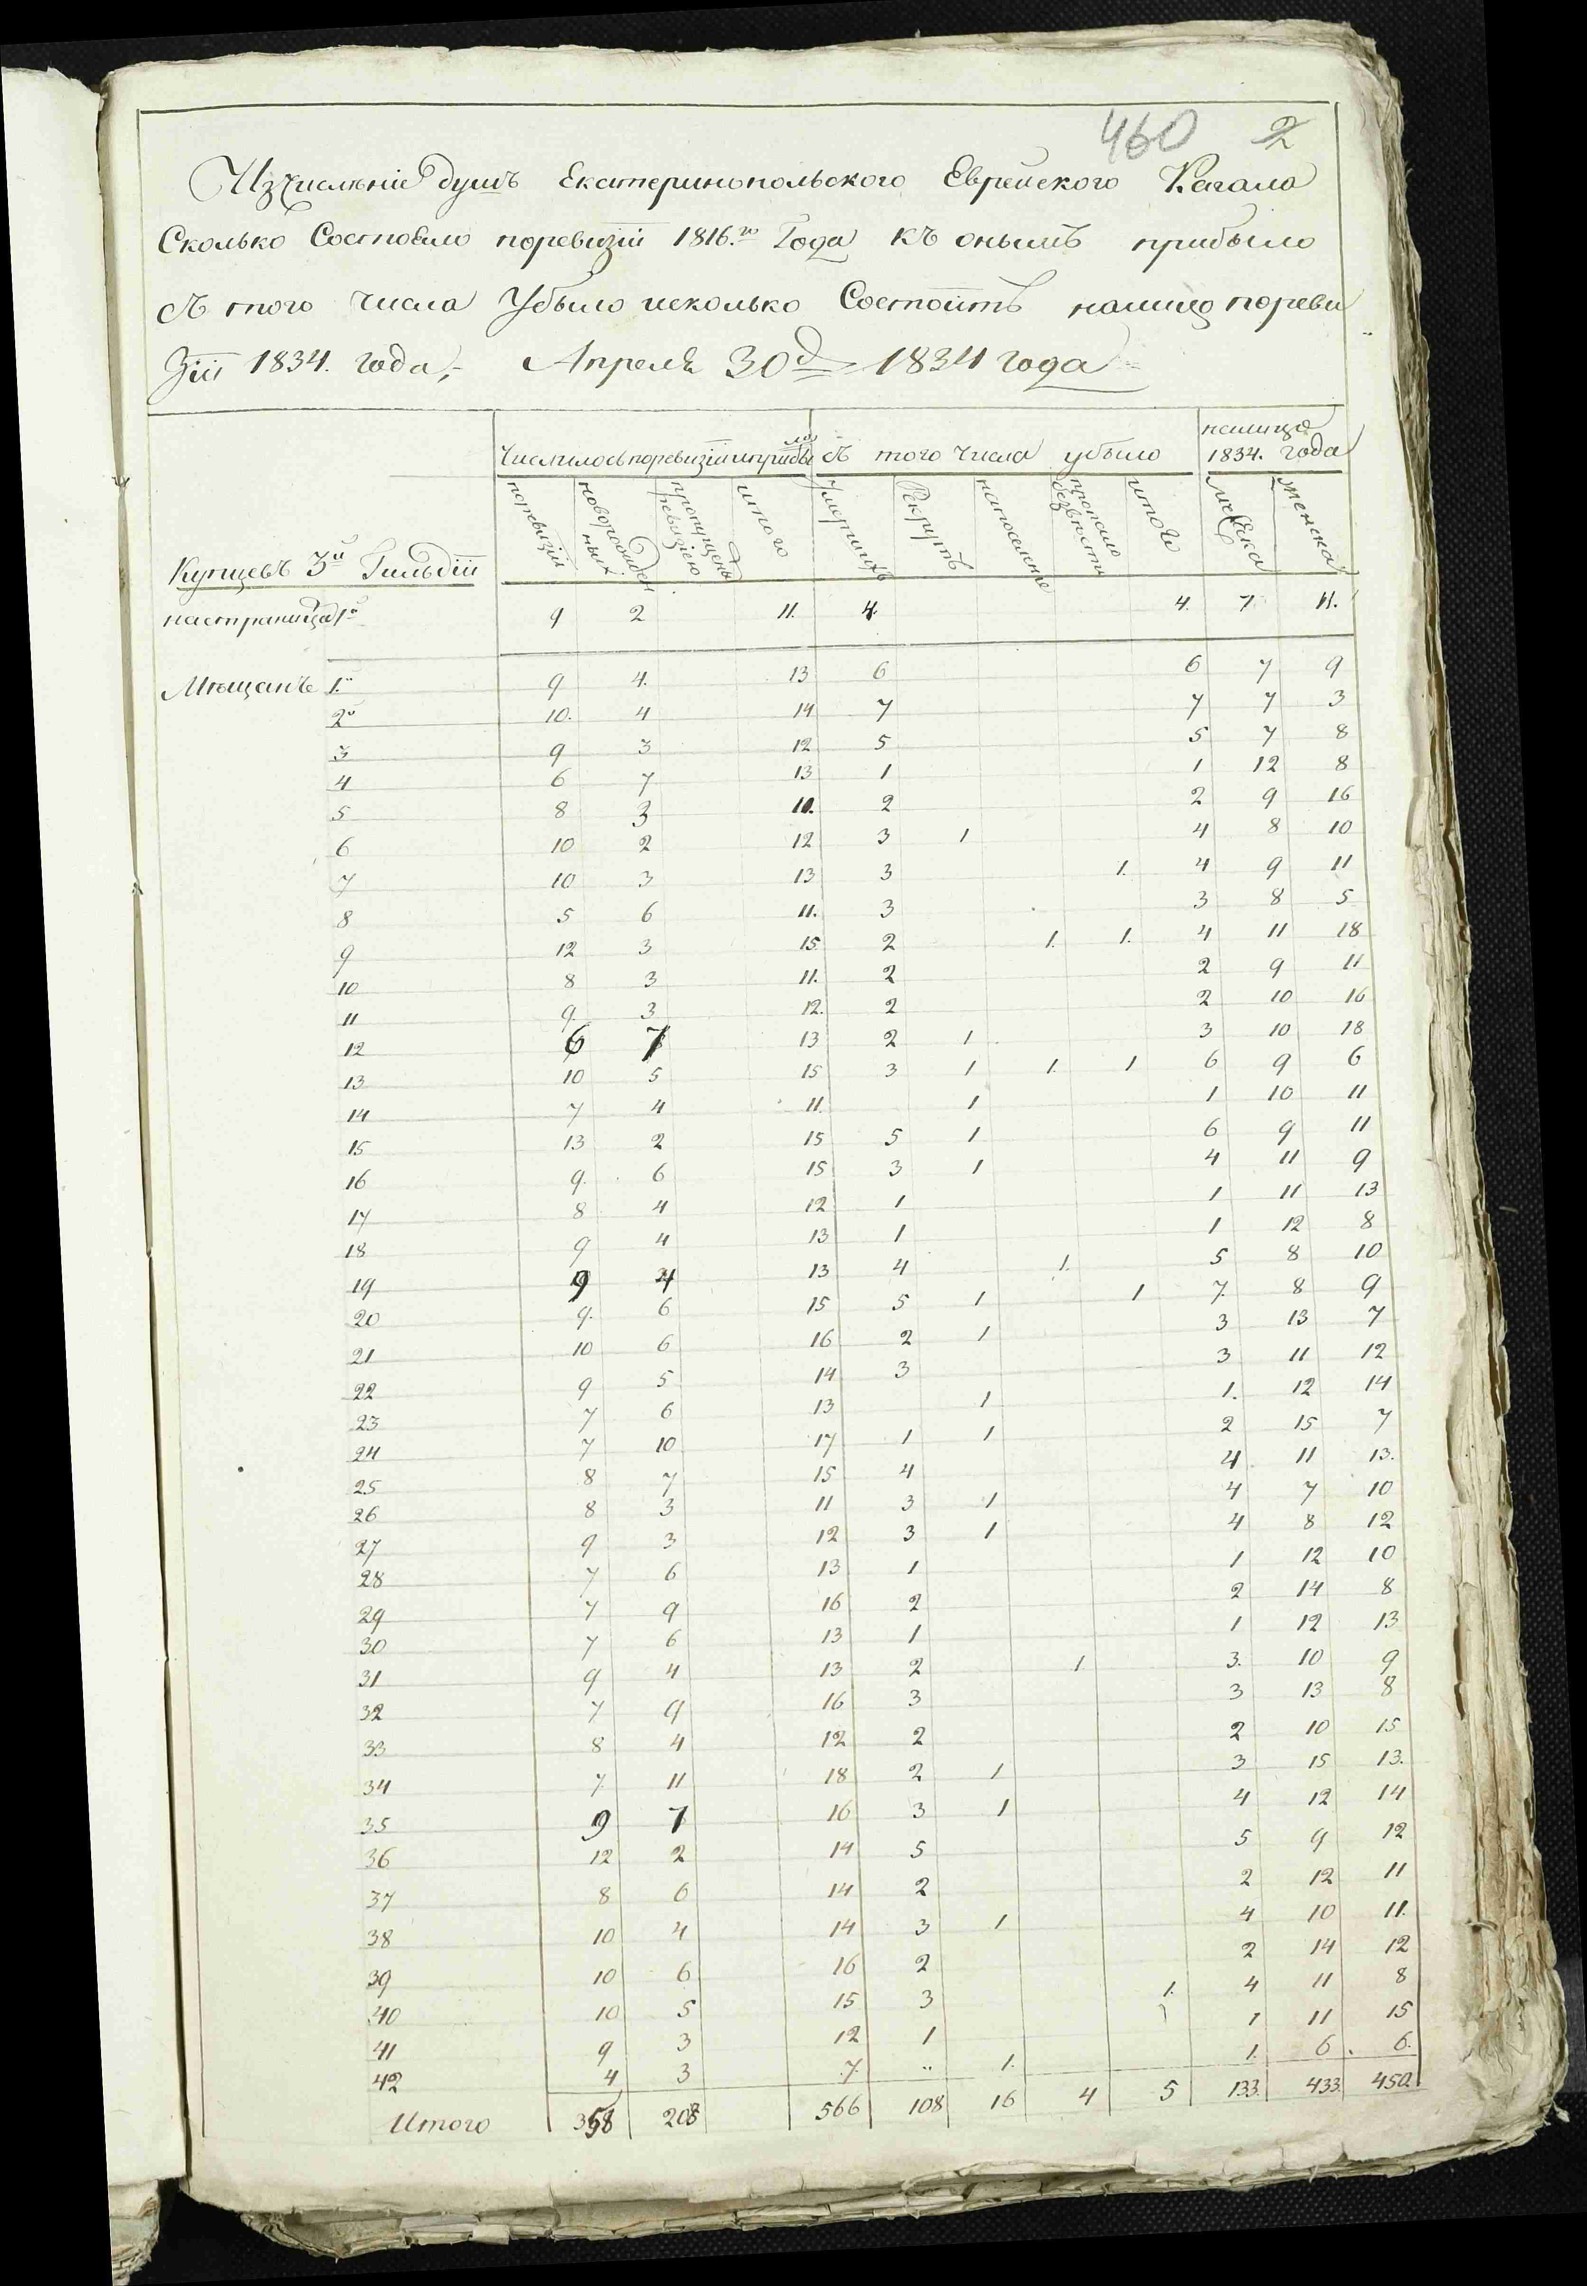 460 2
Изчисленіе душъ Екатеринопольскаго Еврейского Кагала
Сколько Состояло поревизіи 1816.го Года къ онымъ прибыло
съ того числа Убыло исколько Состоитъ налицо пореви
Зіи 1834. года,- Апреля 30 д. 1834 года
Числилось поревизіи и прибыло съ того числа убыло налицо 1834. года
Купцевъ 3й Гильдіи поревизіи новорожденныхъ пропущены ревизіею итого Умершихъ Рекрутъ напоселеніе пропало безвѣсти итого мужеска женска
настраницѣ 1й 9 2 11. 4. 4. 7 11.
Мещанъ 1.й 9 4. 13 6 6 7 9
2й 10. 4 14 7 7 7 3
3 9 3 12 5 5 7 8
4 6 7 13 1 1 12 8
5 8 3 10. 2 2 9 16
6 10 2 12 3 1 4 8 10
7 10 3 13 3 1. 4 9 11
8 5 6 11. 3 3 8 5
9 12 3 15 2 1. 1. 4 11 18
10 8 3 11. 2 2 9 11
11 9. 3 12. 2 2 10 16
12 6 7 13 2 1 3 10 18
13 10 5 15 3 1 1. 1 6 9 6
14 7 4 11. 1 1 10 11
15 13 2 15 5 1 6 9 11
16 9. 6 15 3 1 4 11 9
17 8 4 12 1 1 11 13
18 9 4 13 1 1 12 8
19 9 4 13 4 1. 5 8 10
20 9. 6 15 5 1 1 7. 8 9
21 10 6 16 2 1 3 13 7
22 9 5 14 3 3 11 12
23 7 6 13 1 1. 12 14
24 7 10 17 1 1 2 15 7
25 8 7 15 4 4. 11 13.
26 8 3 11 3 1 4 7 10
27 9 3 12 3 1 4 8 12
28 7 6 13 1 1 12 10
29 7 9 16 2 2 14 8
30 7 6 13 1 1 12 13
31 9 4 13 2 1 3. 10 9
32 7 9 16 3 3 13 8
33 8 4 12 2 2 10 15
34 7. 11 18 2 1 3 15 13.
35 9 7 16 3 1 4 12 14
36 12 2 14 5 5 9 12
37 8 6 14 2 2 12 11
38 10 4 14 3 1 4 10 11.
39 10 6 16 2 2 14 12
40 10 5 15 3 1. 4 11 8
41 9 3 12 1 1 11 15
42 4 3 7. 1. 1. 6. 6.
Итого 358 208 566 108 16 4 5 133. 433. 450.